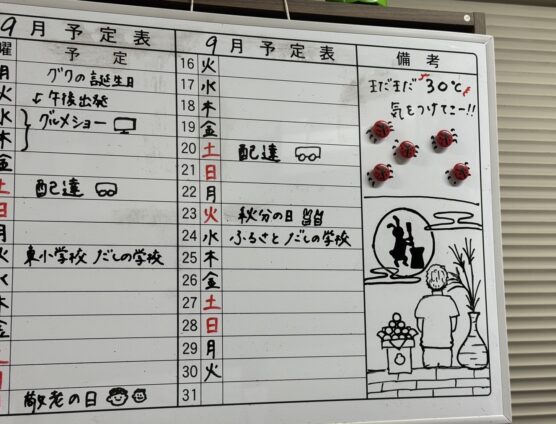 9月予定表
曜 予定
月 グクの誕生日
火 午後出発
水 グルメショー
木
金
土 配達
日
月
火 東小学校 だしの学校
水
木
金
土
日
敬老の日
9月予定表
16 火
17 水
18 木
19 金
20 土 配達
21 日
22 月
23 火 秋分の日
24 水 ふるさと だしの学校
25 木
26 金
27 土
28 日
29 月
30 火
31
備考
まだまだ30℃
気をつけてこー!!